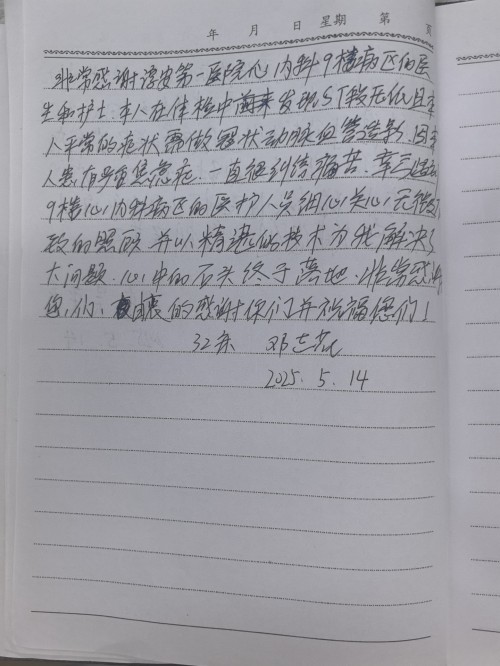 年 月 日 星期 第 页
非常感谢淳安第一医院心内科9楼病区的医
生和护士,本人在体检中查发现ST段压低且本
人平常的症状需做冠状动脉血管造影,因本
人患有严重焦虑症,一直很纠结痛苦,幸三遇到
9楼心内科病区的医护人员细心关心,无微不
致的照顾并以精湛的技术为我解决了
大问题,心中的石头终于落地,非常感谢
您们,衷的感谢你们并祝福您们!
32床 邓
2025.5.14